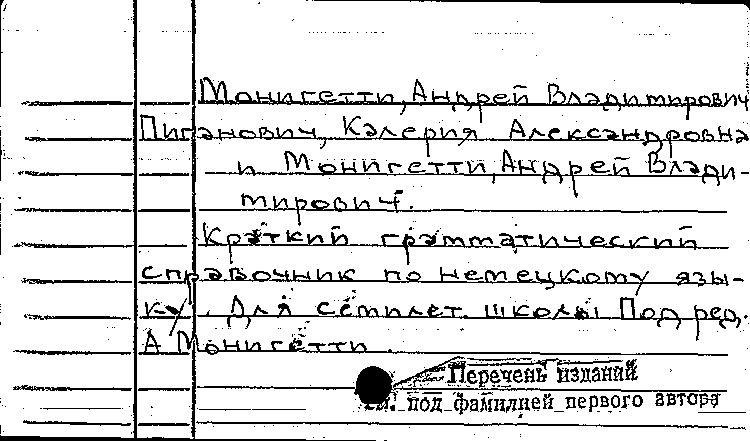 Монигетти, Андрей Владимирович
Пиганович, Калерия Александровна
и Монигетти, Андрей Влади-
мирович.
Краткий грамматический
справочник по немецкому язы-
ку. Для семилет. школы Под ред.
А Монигетти.
Перечень изданий
см. под фамилией первого автора